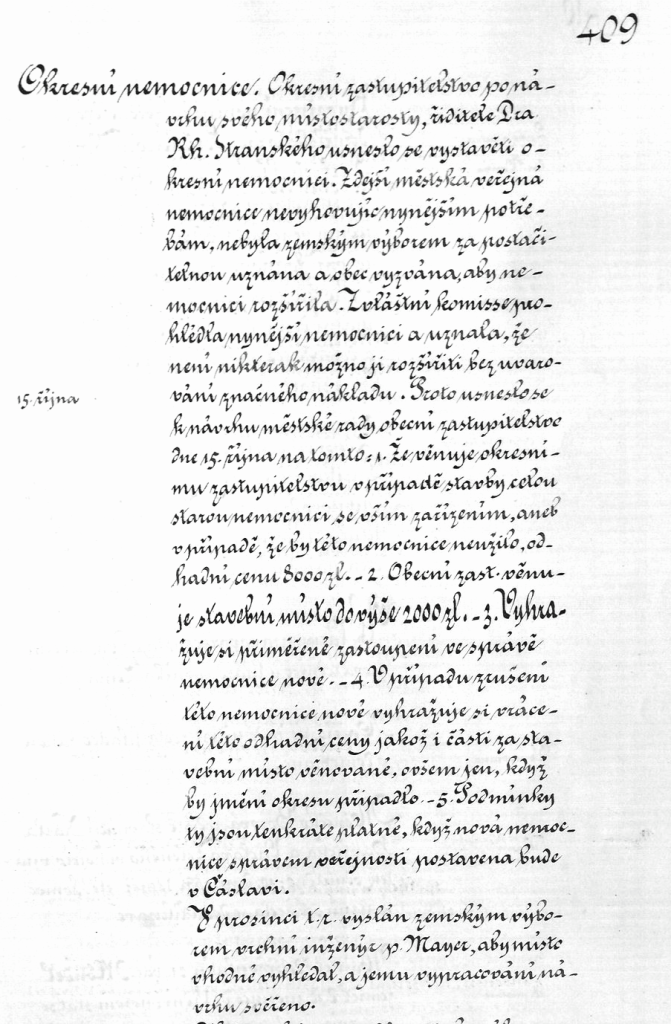 409
Okresní nemocnice. Okresní zastupitelstvo po ná-
vrhu svého místostarosty, řiditele Dra
Rh. Stranského usneslo se vystavěti o-
kresní nemocnici. Zdejší městská veřejná
nemocnice nevyhovujíc nynějším potře-
bám, nebyla zemským výborem za postači-
telnou uznána a obec vyzvána, aby ne-
mocnici rozšířila. Zvláštní komisse pro-
hlédla nynější nemocnici a uznala, že
není nikterak možno ji rozšířiti bez uvaro-
vání značného nákladu. Proto usneslo se
15. října
k návrhu městské rady obecní zastupitelstvo
dne 15. října na tomto: 1. Že věnuje okresní-
mu zastupitelstvu v případě stavby celou
starou nemocnici se vším zařízením, aneb
v případě, že by této nemocnice neužilo, od-
hadní cenu 8000 zl. - 2. Obecní zast. věnu-
je stavební místo do výše 2000 zl. - 3. Vyhra-
žuje si přiměřené zastoupení ve správě
nemocnice nové. - 4. V případu zrušení
této nemocnice nové vyhražuje si vráce-
ní této odhadní ceny jakož i části za sta-
vební místo věnované, ovšem jen, když
by jmění okresu připadlo. - 5. Podmínky
ty jsou tenkráte platné, když nová nemoc-
nice s právem veřejnosti postavena bude
v Čáslavi.
V prosinci t. r. vyslán zemským výbo-
rem vrchní inženýr p. Mayer, aby místo
vhodné vyhledal, a jemu vypracování ná-
vrhu svěřeno.